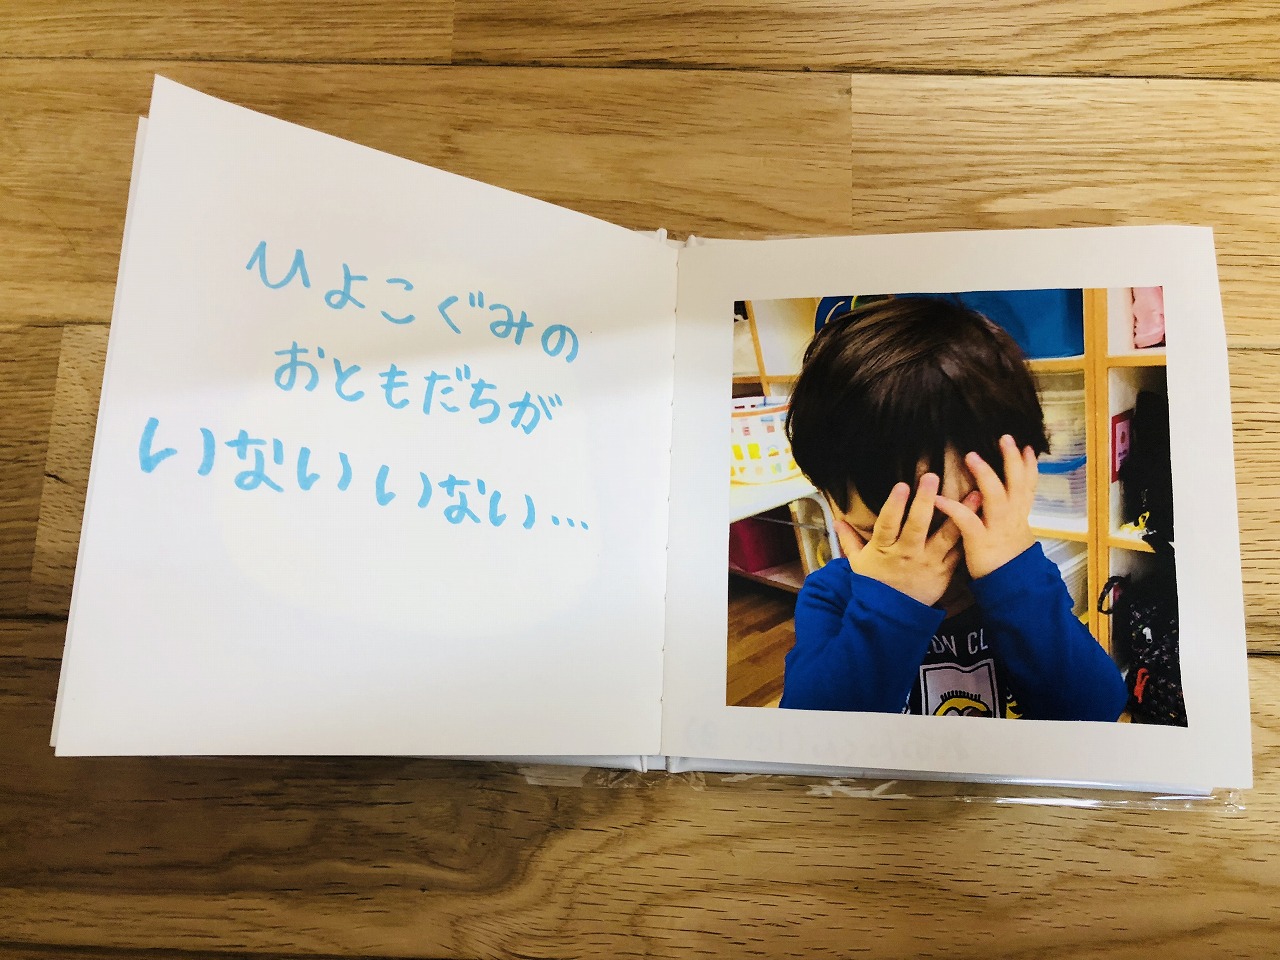 ひよこぐみの
おともだちが
いないいない…